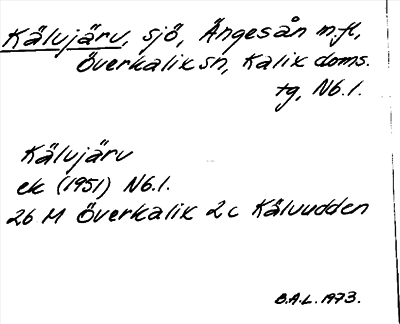 Kälvjärv, sjö, Ängesån m.fl,
Överkalix sn, Kalix doms.
tg, Nb.l.
Kälvjärv
ek (1951) Nb.l.
26 M Överkalix 2c Kälvudden
B.A.L. 1973.